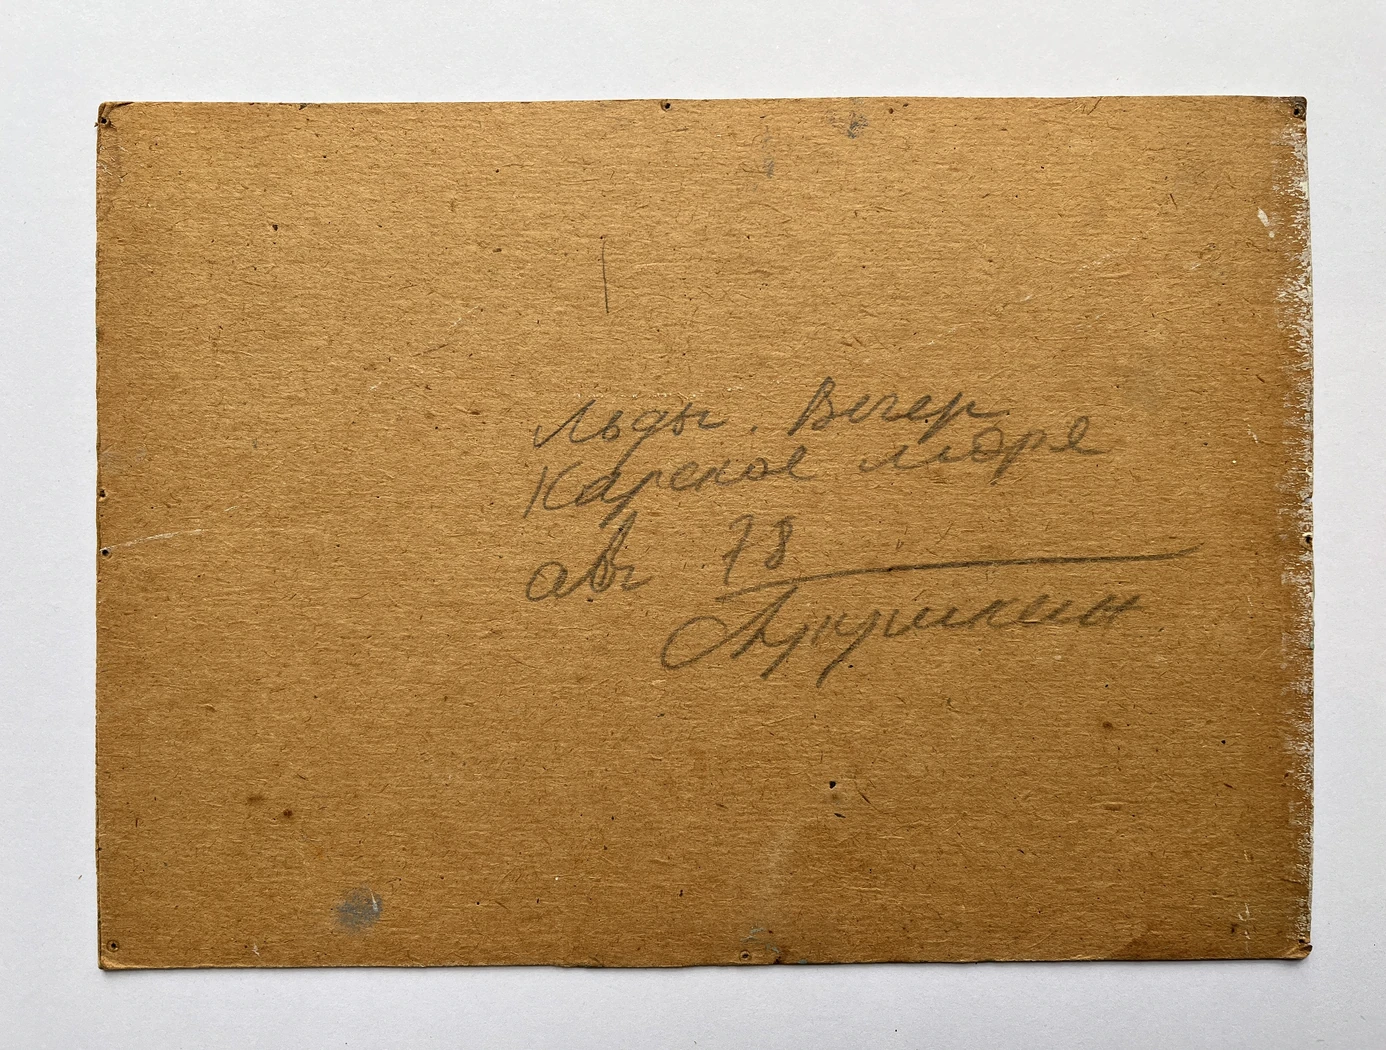 Льды. Вечер
Карское море
авг 78
Лукушкин